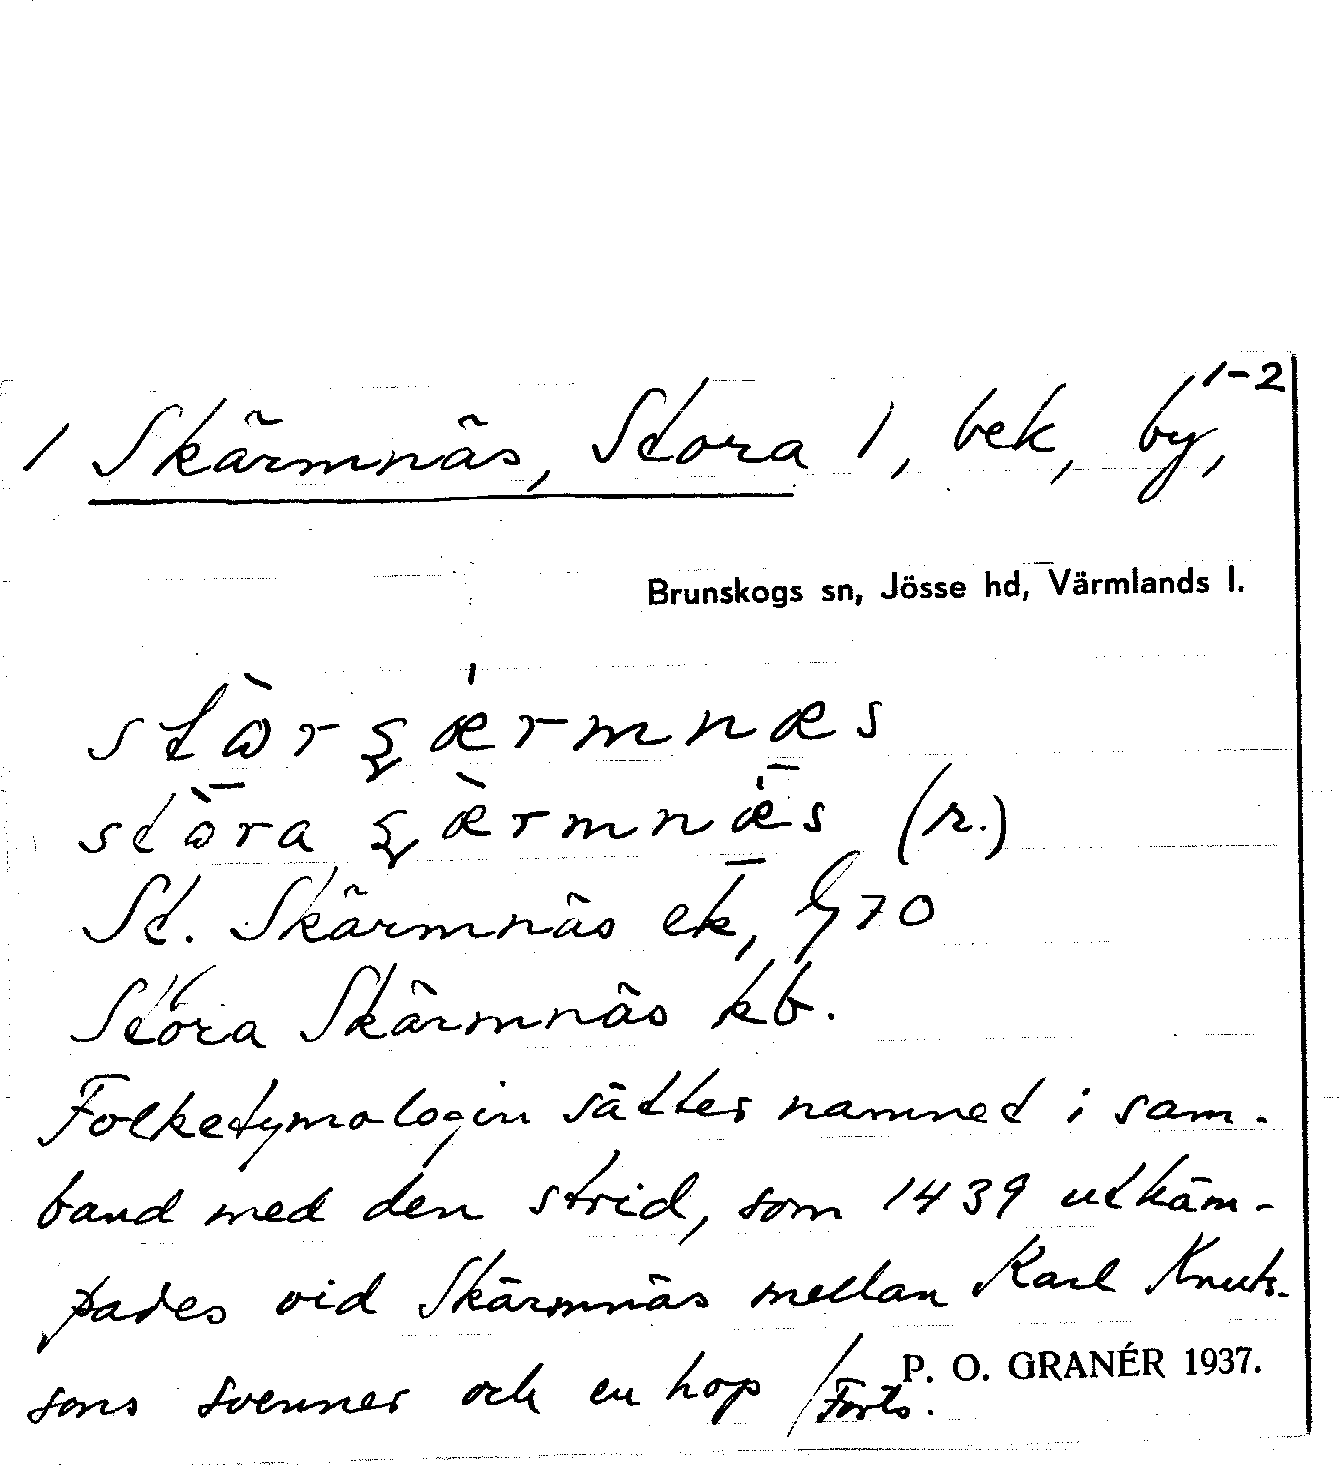 1-2
1 Skärmnäs, Stora 1, bek, by,
Brunskogs sn, Jösse hd, Värmlands l.
(r.)
St. Skärmnäs ek, G70
Stora Skärmnäs kb.
Folketymologin sätter namnet i sam-
band med den strid, som 1439 utkäm-
pades vid Skärmnäs mellan Karl Knuts-
sons svenner och en hop /Forts.
P. O. GRANÉR 1937.